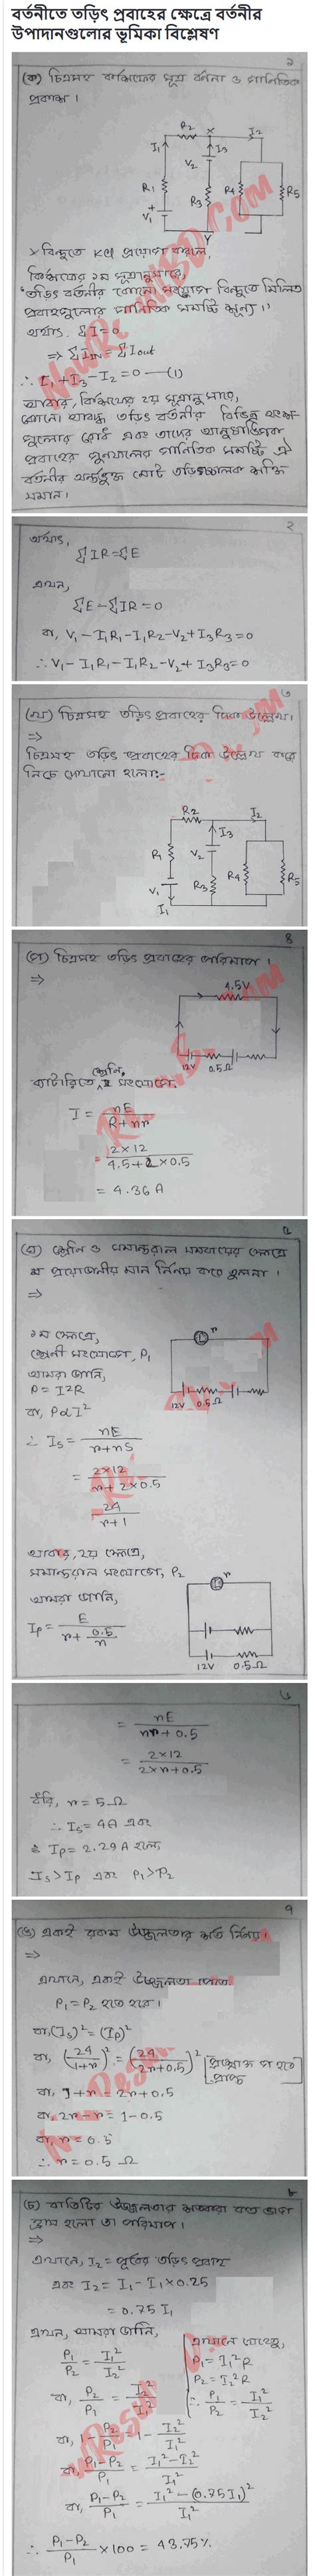 বর্তনীতে তড়িৎ প্রবাহের ক্ষেত্রে বর্তনীর
উপাদানগুলোর ভূমিকা বিশ্লেষণ
১
(ক) চিত্রসহ কার্শফের সূত্র বর্ণনা ও গাণিতিক
প্রকাশ।
R2 X I2
I1 I3
V2
R1 R3 R4 R5
V1 Y
X বিন্দুতে KCL প্রয়োগ করলে,
কির্শফের ১ম সূত্রানুসারে,
'তড়িৎ বর্তনীর কোনো সংযোগ বিন্দুতে মিলিত
প্রবাহগুলোর গাণিতিক সমষ্টি শূন্য।'
অর্থাৎ, ∑I=0
⇒ ∑Iin = ∑Iout
∴ I1+I3-I2=0 —(1)
আবার, কির্শফের ২য় সূত্রানুসারে,
কোনো আবদ্ধ তড়িৎ বর্তনীর বিভিন্ন অংশ-
গুলোর রোধ এবং তাদের আনুষঙ্গিক
প্রবাহের গুণফলের গাণিতিক সমষ্টি ঐ
বর্তনীর অন্তর্ভুক্ত মোট তড়িচ্চালক শক্তির
সমান।
২
অর্থাৎ,
∑IR=∑E
এখন,
∑E-∑IR=0
বা, V1-I1R1-I1R2-V2+I3R3=0
∴ V1-I1R1-I1R2-V2+I3R3=0
৩
(খ) চিত্রসহ তড়িৎ প্রবাহের দিক উল্লেখ।
⇒
চিত্রসহ তড়িৎ প্রবাহের দিক উল্লেখ করে
নিচে দেখানো হলো:-
R2 I2
I3
R1 V2 R4 R5
V1 R3
I1
৪
(গ) চিত্রসহ তড়িৎ প্রবাহের পরিমাপ।
⇒
4.5V
12V 0.5Ω
ব্যাটারিতে শ্রেণি সংযোগে,
I = nE / R+nr
= 2×12 / 4.5+2×0.5
= 4.36 A
৫
(ঘ) শ্রেণি ও সমান্তরাল সমবায়ের ক্ষেত্রে
প্রয়োজনীয় মান নির্ণয় করে তুলনা।
⇒
১ম ক্ষেত্রে,
শ্রেণী সংযোগে, P1
আমরা জানি,
P = I2R
বা, P∝I2
∴ Is = nE / r+nS
= 2×12 / r+2×0.5
24 / r+1
r
12V 0.5Ω
আবার, ২য় ক্ষেত্রে,
সমান্তরাল সংযোগে, P2
আমরা জানি,
Ip = E / r + 0.5/n
r
12V 0.5Ω
৬
= nE / nr+0.5
= 2×12 / 2×r+0.5
ধরি, r = 5Ω
∴ Is = 4A এবং
Ip = 2.29A হলে,
Is>Ip এবং P1>P2
৭
(ঙ) একই রকম উজ্জ্বলতার শর্ত নির্ণয়।
⇒
এখানে, একই উজ্জ্বলতা পেতে
P1=P2 হতে হবে।
বা, (Is)2=(Ip)2
বা, (24/1+r)2=(24/2r+0.5)2 [প্রশ্নোক্ত ঘ হতে প্রাপ্ত]
বা, 1+r = 2r+0.5
বা, 2r-r = 1-0.5
বা, r = 0.5
∴ r = 0.5 Ω
৮
(চ) বাতিটির উজ্জ্বলতার শতকরা কত ভাগ
হ্রাস হলো তা পরিমাপ।
⇒
এখানে, I2 = পূর্বের তড়িৎ প্রবাহ
এবং I2 = I1-I1×0.25
= 0.75 I1
এখন, আমরা জানি,
P1/P2 = I12/I22
বা, P2/P1 = I22/I12
বা, 1-P2/P1 = 1-I22/I12
বা, P1-P2/P1 = I12-I22/I12
বা, P1-P2/P1 = I12-(0.75I1)2/I12
∴ P1-P2/P1 ×100 = 43.75%
এখানে যেহেতু,
P1=I12R
P2=I22R
∴ P1/P2 = I12/I22